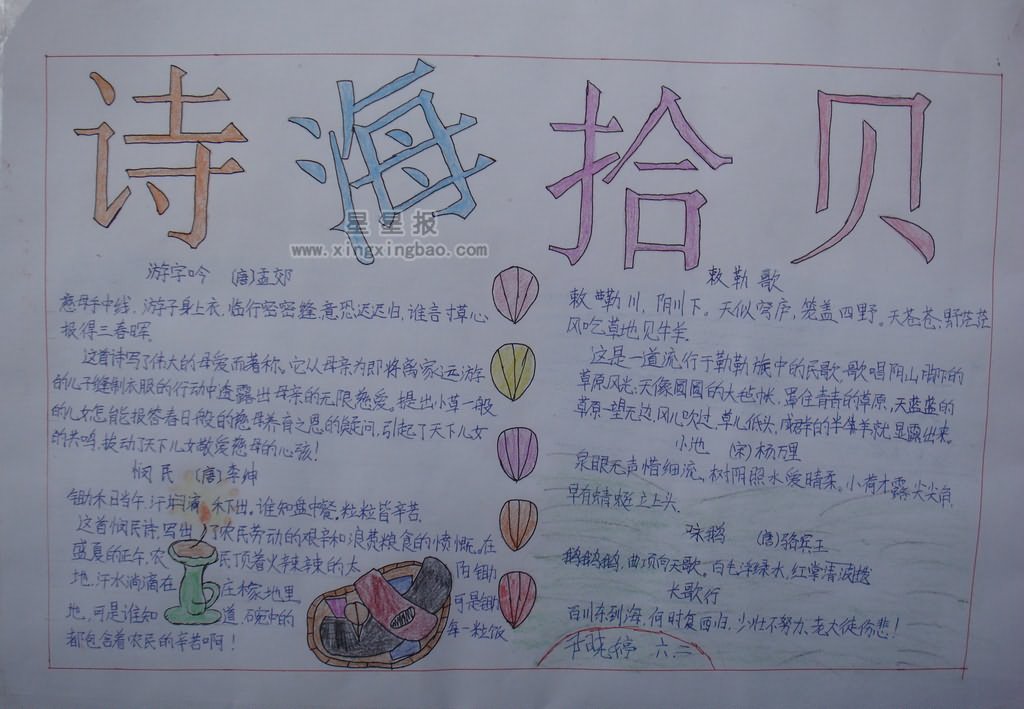 诗海拾贝
星星报
www.xingxingbao.com
游字吟 (唐)孟郊
慈母手中线,游子身上衣,临行密密缝,意恐迟迟归,谁言寸草心,
报得三春晖.
这首诗写了伟大的母爱而著称。它从母亲为即将离家远游
的儿子缝制衣服的行动中透露出母亲的无限慈爱。提出小草一般
的儿女怎能报答春日般的慈母养育之恩的疑问,引起了天下儿女
的共鸣,拨动了天下儿女敬爱慈母的心弦!
悯民 (唐)李绅
锄禾日当午,汗滴禾下出,谁知盘中餐,粒粒皆辛苦.
这首悯民诗,写出了农民劳动的艰辛和浪费粮食的愤慨。在
盛夏的正午,农民顶着火辣辣的太阳锄
地,汗水淌滴在庄稼地里
地,可是谁知道碗中的每一粒饭
可是锄
都包含着农民的辛苦啊!
敕勒歌
敕勒川,阴川下。天似穹庐,笼盖四野。天苍苍,野茫茫
风吃草地见牛羊.
这是一道流行于勒勒族中的民歌。歌唱阴山脚下的
草原风光。天像圆圆的大毡帐,罩住青青的草原,天蓝蓝的
草原一望无边,风儿吹过,草儿低头,成群的半隻羊就显露出来。
小池 (宋)杨万里
泉眼无声惜细流,树阴照水爱晴柔。小荷才露尖尖角
早有蜻蜓立上头.
咏鹅 (唐)骆宾王
鹅鹅鹅,曲项向天歌。白毛浮绿水,红掌清波拨
长歌行
百川东到海,何时复西归,少壮不努力,老大徒伤悲!
晓婷 六.二